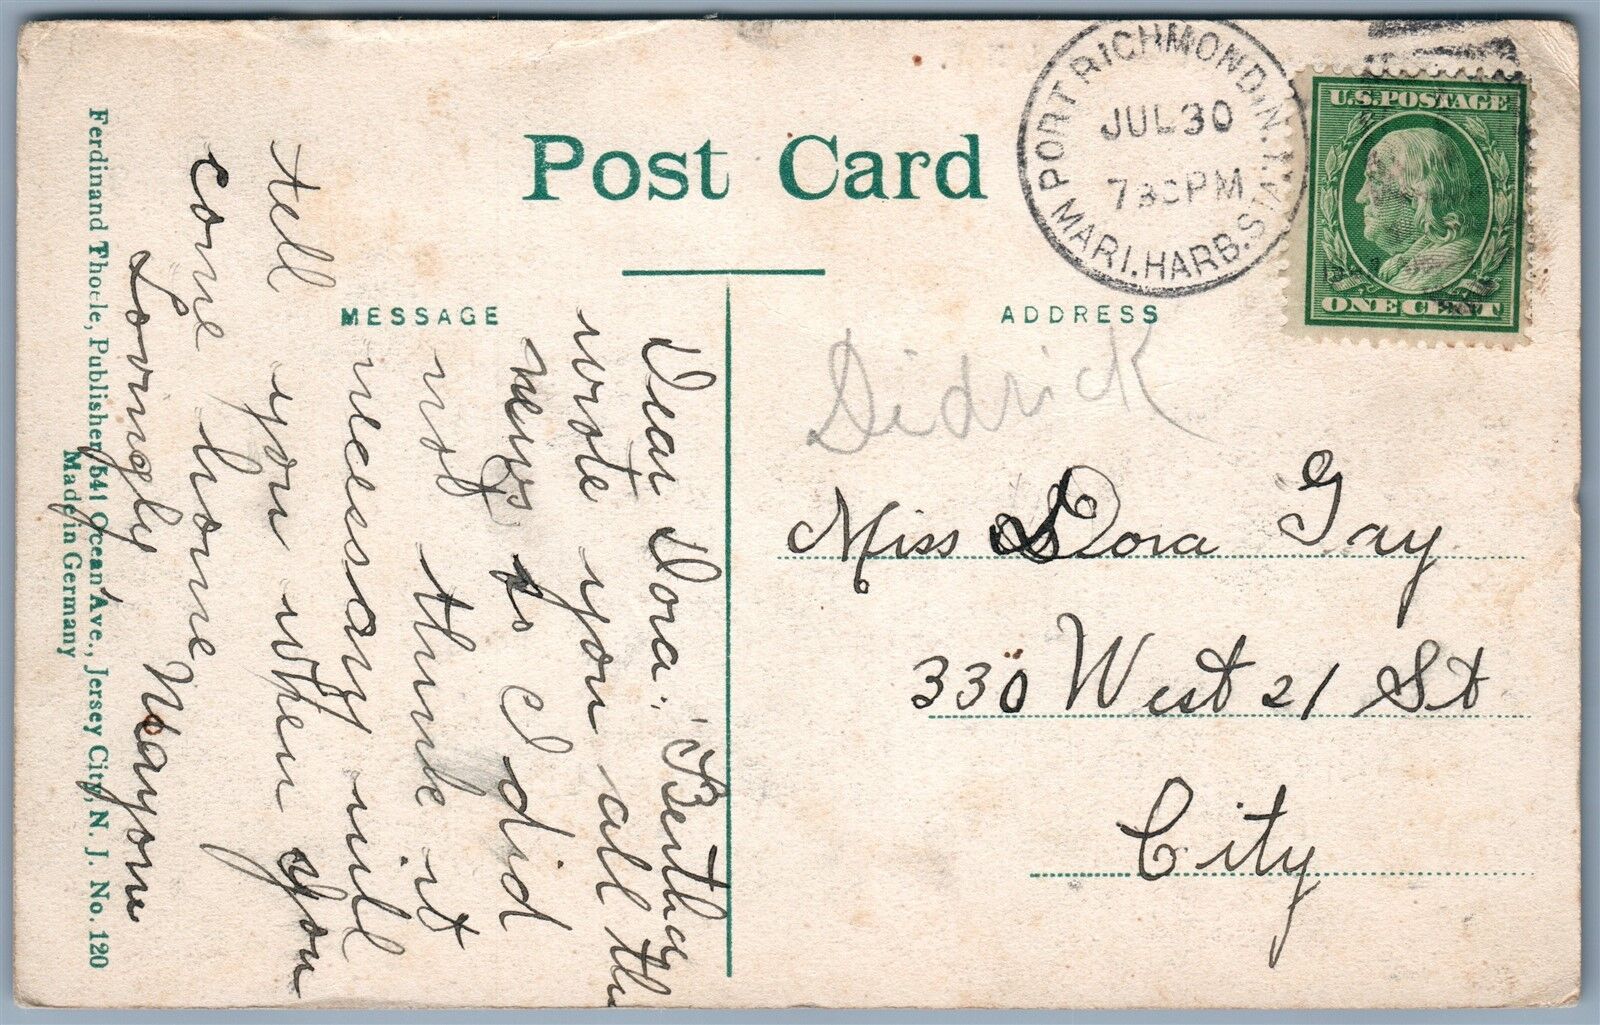 Post Card
PORT RICHMOND, N.Y.
JUL 30
7 30 PM
MARI. HARB. STA.
U.S. POSTAGE
ONE CENT
MESSAGE
ADDRESS
Dear Dora: Bertha
wrote you all the
news so I did
not think it
necessary will
tell you when you
come home
Lovingly Mayone
Didrick
Miss Dora Gay
330 West 21 St
City
Ferdinand Thoele, Publisher, 541 Ocean Ave., Jersey City, N. J. No. 120
Made in Germany